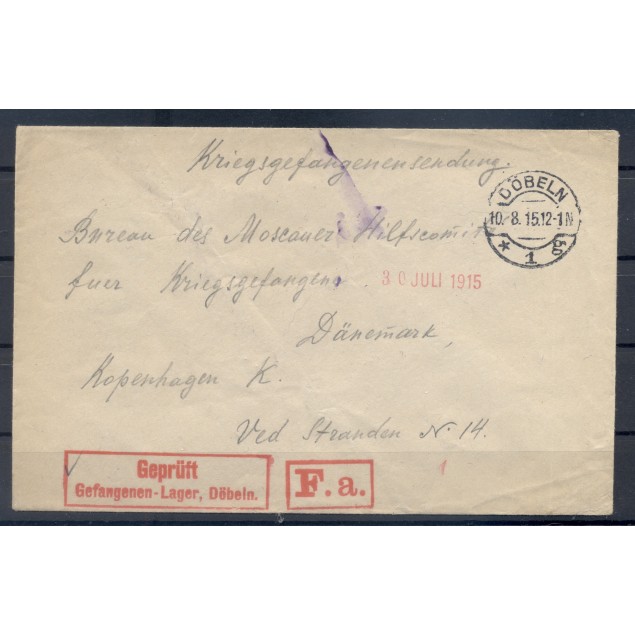 Kriegsgefangenensendung.
DÖBELN
10. 8. 15.12-1N
* 1
Bureau des Moscauer Hilfscomit
fuer Kriegsgefangene
30 JULI 1915
Dänemark,
Kopenhagen K.
Ved Stranden N. 14.
Geprüft
Gefangenen-Lager, Döbeln.
F. a.
1